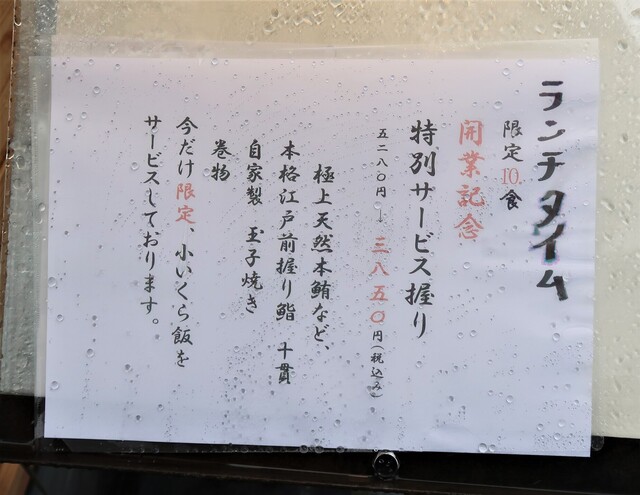 ランチタイム
限定10.食
開業記念
特別サービス握り
五二八〇円→三八五〇円(税込み)
極上天然本鮪など、
本格江戸前握り鮨 十貫
自家製 玉子焼き
巻物
今だけ限定、小いくら飯を
サービスしております。